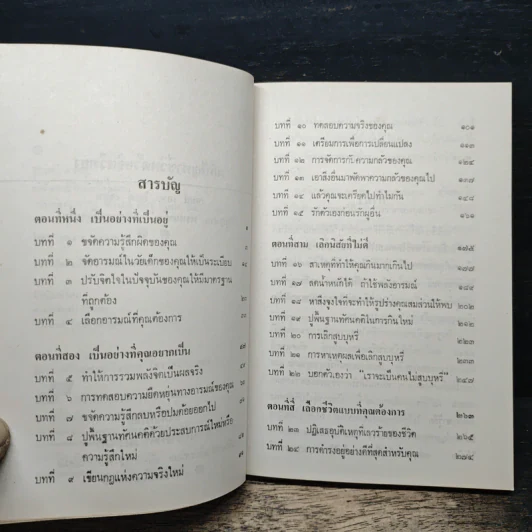 สารบัญ
ตอนที่หนึ่ง เป็นอย่างที่เป็นอยู่ ๑
บทที่ ๑ ขจัดความรู้สึกผิดของคุณ
บทที่ ๒ จัดอารมณ์ในวัยเด็กของคุณให้เป็นระเบียบ
บทที่ ๓ ปรับจิตใจในปัจจุบันของคุณให้มีมาตรฐาน
ที่ถูกต้อง
บทที่ ๔ เลือกอารมณ์ที่คุณต้องการ
ตอนที่สอง เป็นอย่างที่คุณอยากเป็น
บทที่ ๕ ทำให้การรวมพลังจิตเป็นผลจริง
บทที่ ๖ การทดสอบความยืดหยุ่นทางอารมณ์ของคุณ
บทที่ ๗ ขจัดความรู้สึกลบหรือปมด้อยออกไป
บทที่ ๘ ปูพื้นฐานทัศนคติด้วยประสบการณ์ใหม่หรือ
ความรู้สึกใหม่
บทที่ ๙ เขียนกฎแห่งความจริงใหม่
บทที่ ๑๐ ทดสอบความจริงของคุณ ๑๐๑
บทที่ ๑๑ เตรียมการเพื่อการเปลี่ยนแปลง
บทที่ ๑๒ การจัดการกับความกลัวของคุณ ๑๒๔
บทที่ ๑๓ เอาสิ่งอื่นมาพัดพาความกลัวของคุณไป
บทที่ ๑๔ แล้วคุณจะเครียดไปทำไมกัน
บทที่ ๑๕ รักตัวเองก่อนรักผู้อื่น ๑๖๑
ตอนที่สาม เลิกนิสัยที่ไม่ดี ๑๗๕
บทที่ ๑๖ สาเหตุที่ทำให้คุณกินมากเกินไป ๑๗๗
บทที่ ๑๗ ลดน้ำหนักได้ ถ้าใช้พลังอารมณ์
บทที่ ๑๘ หาสิ่งจูงใจที่จะทำให้รูปร่างคุณสมส่วนให้พบ ๒๐๒
บทที่ ๑๙ ปูพื้นฐานทัศนคติในการกินใหม่
บทที่ ๒๐ การเลิกสูบบุหรี่
บทที่ ๒๑ การหาเหตุผลเพื่อเลิกสูบบุหรี่ ๒๓๓
บทที่ ๒๒ บอกตัวเองว่า "เราจะเป็นคนไม่สูบบุหรี่" ๒๔๗
ตอนที่สี่ เลือกชีวิตแบบที่คุณต้องการ ๒๖๓
บทที่ ๒๓ ปฏิเสธอุบัติเหตุที่เลวร้ายของชีวิต ๒๖๕
บทที่ ๒๔ การดำรงอยู่อย่างดีที่สุดสำหรับคุณ ๒๗๔